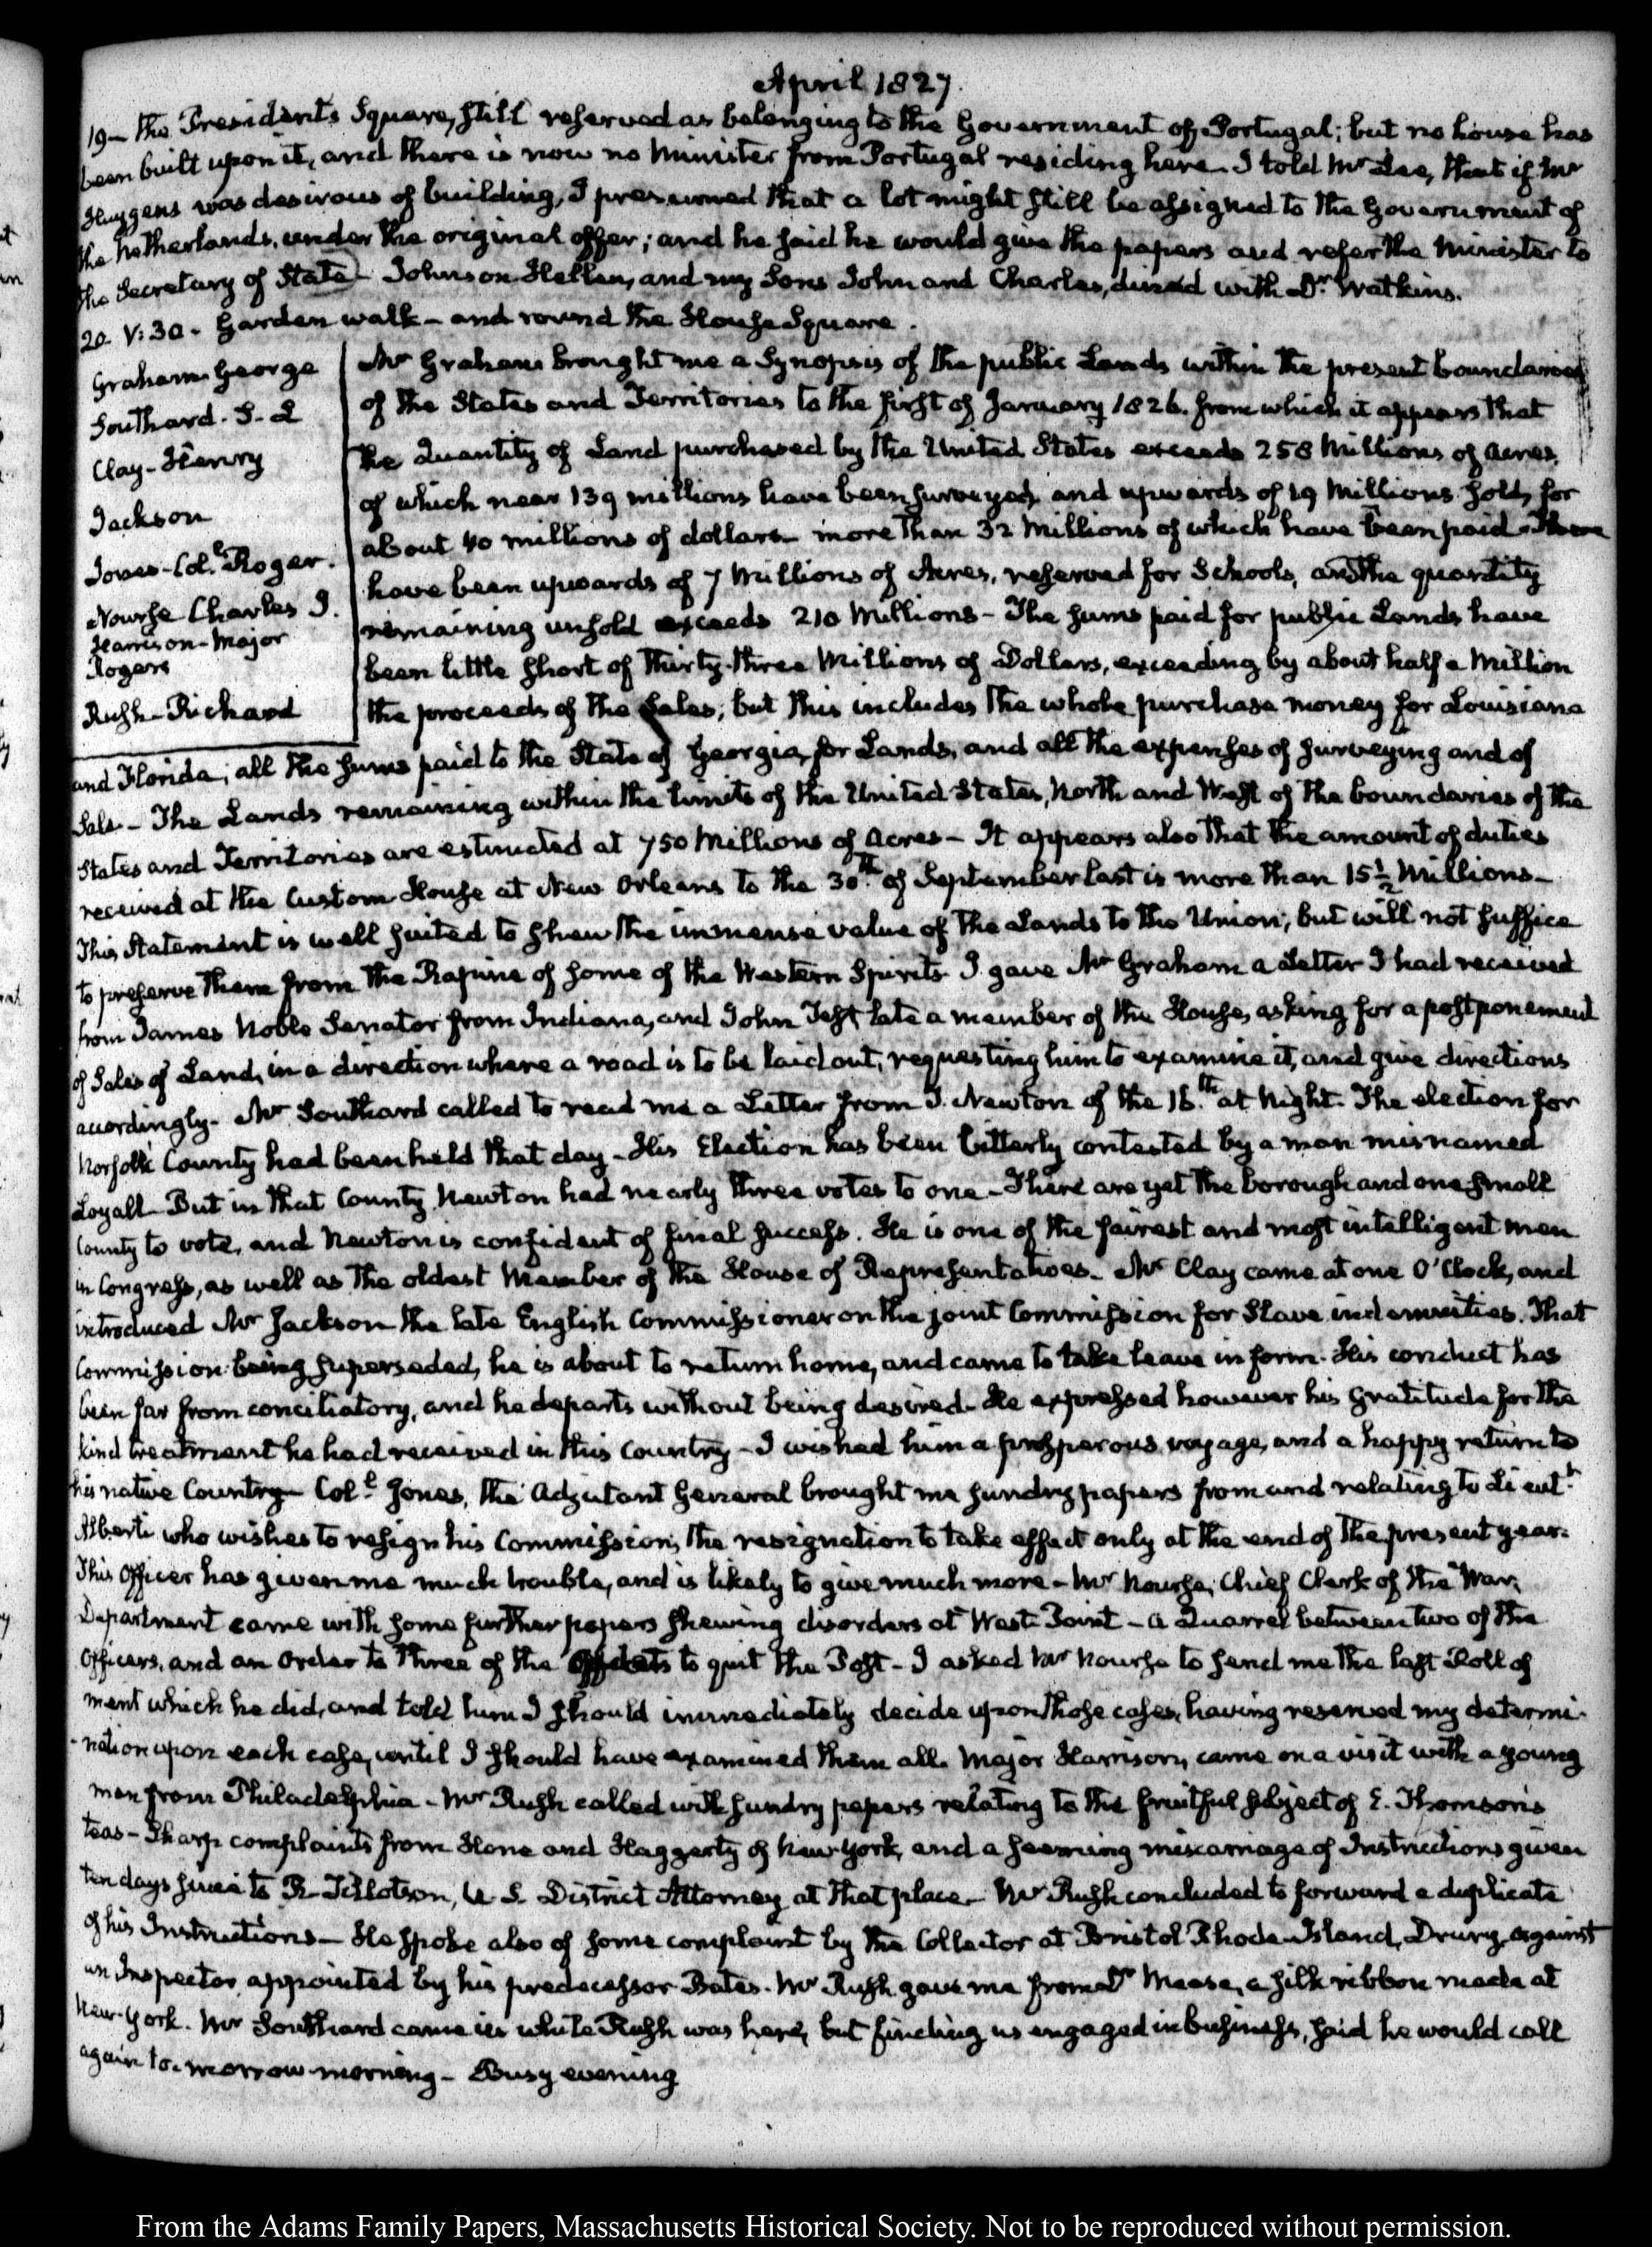 April 1827.
19— the President's Square, still reserved as belonging to the Government of Portugal; but no house has
been built upon it, and there is now no Minister from Portugal residing here. I told Mr Lee, that if Mr
Huygens was desirous of building, I presumed that a lot might still be assigned to the Government of
the Netherlands, under the original offer; and he said he would give the papers and refer the Minister to
the Secretary of State— Johnson Hellen, and my Sons John and Charles, dined with Dr. Watkins.
20. V:30. Garden walk— and round the House Square.
Graham George
Southard. S. L
Clay— Henry
Jackson
Jones— Col.l Roger.
Nourse Charles J.
Harrison— Major
Rogers
Rush— Richard
Mr Graham brought me a Synopsis of the public Lands within the present boundaries
of the States and Territories to the first of January 1826. from which it appears that
the Quantity of Land purchased by the United States exceeds 258 Millions of acres,
of which near 139 millions have been surveyed, and upwards of 19 Millions sold, for
about 40 millions of dollars— more than 32 Millions of which have been paid— There
have been upwards of 7 Millions of Acres, reserved for Schools, and the quantity
remaining unsold exceeds 210 Millions— The sums paid for public Lands have
been little short of Thirty-three Millions of Dollars, exceeding by about half a Million
the proceeds of the Sales; but this includes the whole purchase money for Louisiana
and Florida; all the sums paid to the State of Georgia, for Lands, and all the expenses of surveying and of
Sale— The Lands remaining within the limits of the United States, North and West of the boundaries of the
States and Territories are estimated at 750 Millions of Acres— It appears also that the amount of duties
received at the Custom House at New Orleans to the 30th. of September last is more than 15½ Millions—
This Statement is well suited to shew the immense value of the Lands to the Union; but will not suffice
to preserve them from the Rapine of some of the Western Spirits. I gave Mr Graham a Letter I had received
from James Noble Senator from Indiana, and John Test late a member of the House, asking for a postponement
of Sales of Land, in a direction where a road is to be laid out, requesting him to examine it, and give directions
accordingly— Mr Southard called to read me a Letter from T. Newton of the 16.th at Night. The election for
Norfolk County had been held that day— His Election has been bitterly contested by a man misnamed
Loyall— But in that County Newton had nearly three votes to one— There are yet the borough and one small
County to vote, and Newton is confident of final success. He is one of the fairest and most intelligent men
in Congress, as well as the oldest Member of the House of Representatives— Mr Clay came at one O'Clock, and
introduced Mr Jackson the late English Commissioner on the joint Commission for Slave indemnities. That
Commission being superseded, he is about to return home, and came to take leave in form. His conduct has
been far from conciliatory, and he departs without being desired— He expressed however his gratitude for the
kind treatment he had received in this Country— I wished him a prosperous voyage, and a happy return to
his native Country— Col.l Jones, the Adjutant General brought me sundry papers from and relating to Lieut.t
Alberti who wishes to resign his Commission, the resignation to take effect only at the end of the present year.
This Officer has given me much trouble, and is likely to give much more— Mr Nourse, Chief Clerk of the War
Department came with some further papers shewing disorders at West-Point— a Quarrel between two of the
Officers, and an Order to three of the to quit the Post— I asked Mr Nourse to send me the last Roll of
merit which he did, and told him I should immediately decide upon those cases, having reserved my determi-
-nation upon each case, until I should have examined them all. Major Harrison, came on a visit with a young
man from Philadelphia— Mr Rush called with sundry papers relating to the fruitful subject of E. Thomson's
teas— Sharp complaints from Hone and Haggerty of New-York, and a seeming miscarriage of Instructions given
ten days since to R. Tillotson, U. S. District Attorney at that place— Mr Rush concluded to forward a duplicate
of his Instructions— He spoke also of some complaint by the Collector at Bristol Rhode-Island, Drury, against
an Inspector, appointed by his predecessor Bates. Mr Rush gave me from Dr Mease, a silk ribbon made at
New-York. Mr Southard came in while Rush was here, but finding us engaged in business, said he would call
again to-morrow-morning— Busy evening
From the Adams Family Papers, Massachusetts Historical Society. Not to be reproduced without permission.